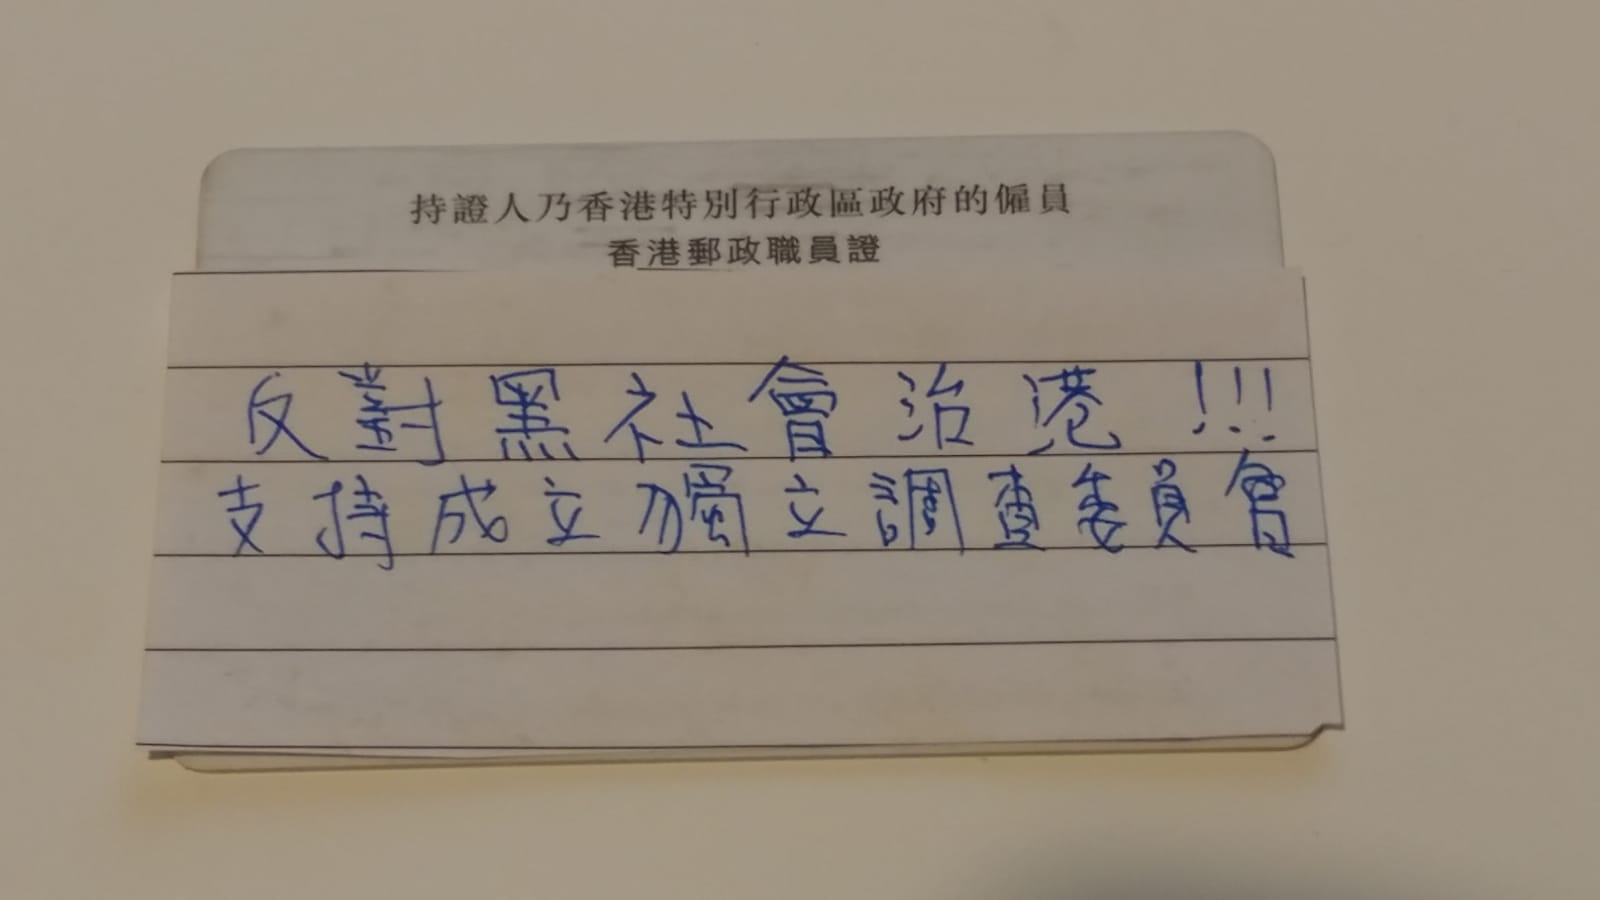 持證人乃香港特別行政區政府的僱員
香港郵政職員證
反對黑社會治港!!!
支持成立獨立調查委員會